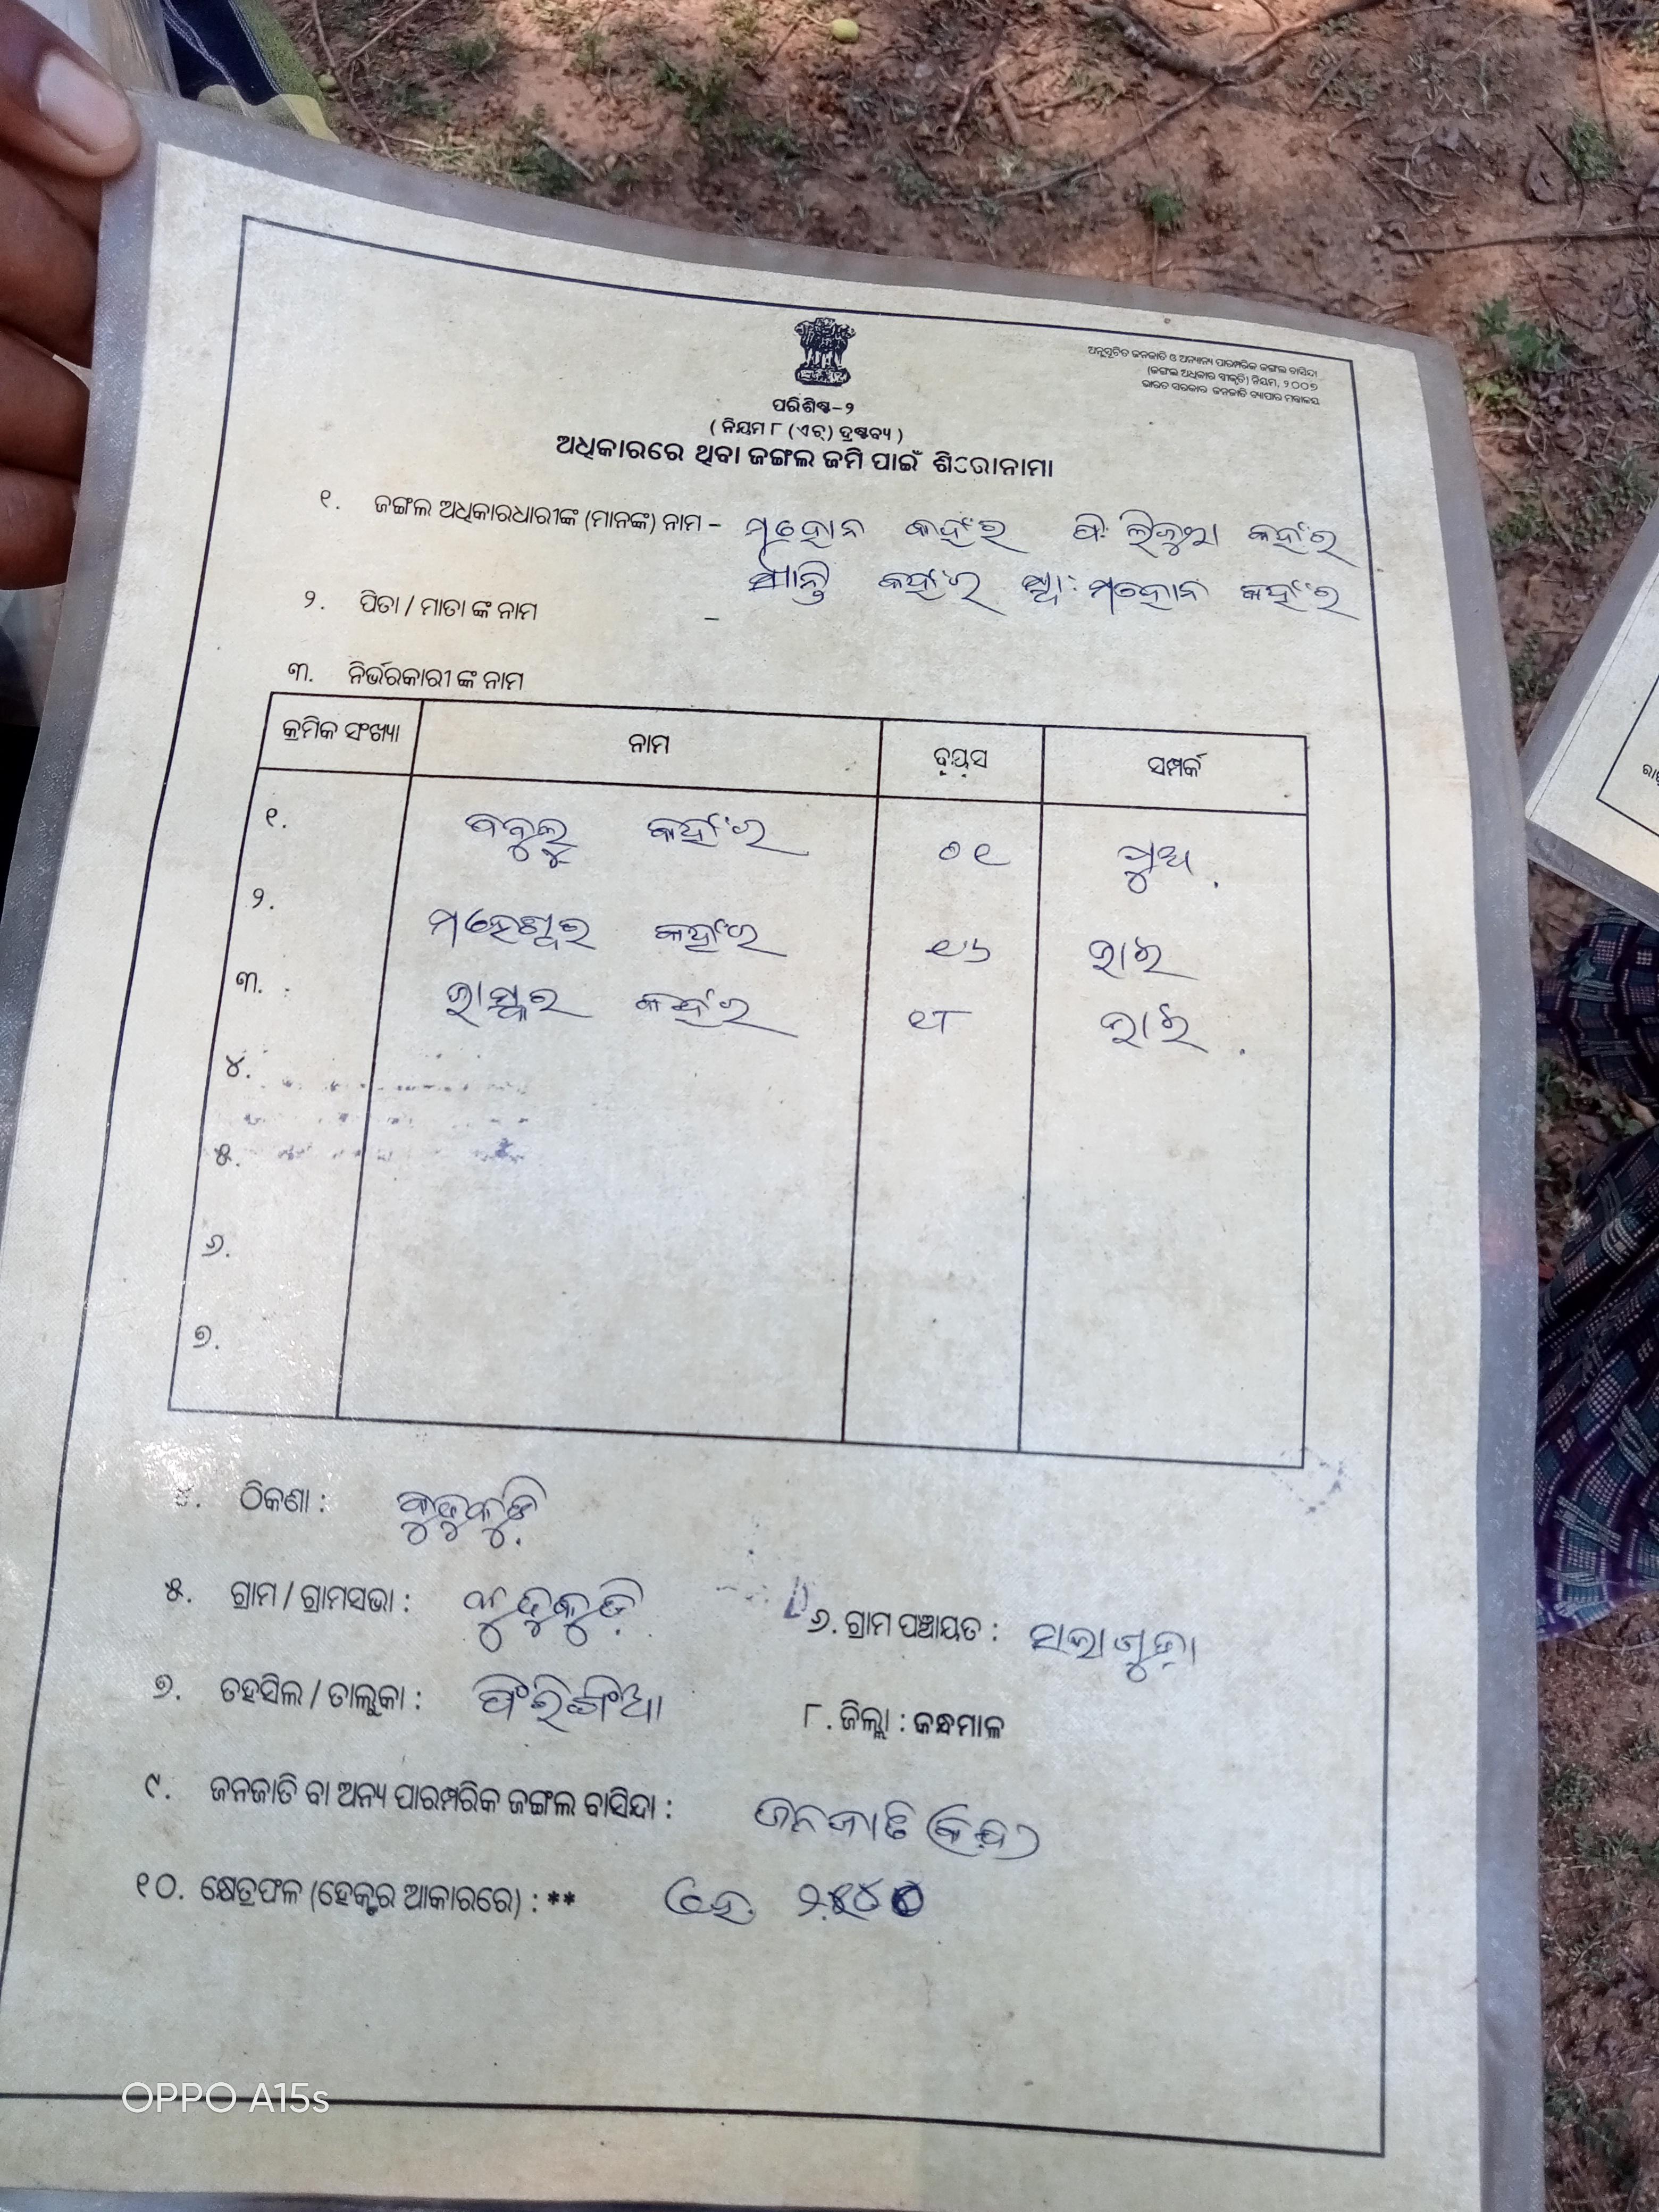 ଅନୁସୂଚିତ ଜନଜାତି ଓ ଅନ୍ୟାନ୍ୟ ପାରମ୍ପରିକ ଜଙ୍ଗଲ ବାସିନ୍ଦା
(ଜଙ୍ଗଲ ଅଧିକାର ସ୍ୱୀକୃତି) ନିୟମ, ୨୦୦୭
ଭାରତ ସରକାର ଜନଜାତି ବ୍ୟାପାର ମନ୍ତ୍ରାଳୟ
ପରିଶିଷ୍ଟ-୨
( ନିୟମ ୮ (ଏଚ୍) ଦ୍ରଷ୍ଟବ୍ୟ )
ଅଧିକାରରେ ଥିବା ଜଙ୍ଗଲ ଜମି ପାଇଁ ଶିରୋନାମା
୧. ଜଙ୍ଗଲ ଅଧିକାରଧାରୀଙ୍କ (ମାନଙ୍କ) ନାମ – ମହୋନ କହଁର ପି: କହଁର
ଶାନ୍ତି କହଁର ସ୍ୱା: ମହୋନ କହଁର
୨. ପିତା / ମାତା ଙ୍କ ନାମ –
୩. ନିର୍ଭରକାରୀ ଙ୍କ ନାମ
କ୍ରମିକ ସଂଖ୍ୟା ନାମ ବୟସ ସମ୍ପର୍କ
୧. ବବୁଲୁ କହଁର ୦୧ ପୁଅ
୨. ମହେଶ୍ୱର କହଁର ୧୬ ଭାଇ
୩. ଭାସ୍କର କହଁର ୧୮ ଭାଇ
୪.
୫.
୬.
୭.
୪. ଠିକଣା :
୫. ଗ୍ରାମ / ଗ୍ରାମସଭା :
୬. ଗ୍ରାମ ପଞ୍ଚାୟତ : ସାଲାଗୁଡ଼ା
୭. ତହସିଲ / ତାଲୁକା : ଫିରିଙ୍ଗିଆ
୮. ଜିଲ୍ଲା : କନ୍ଧମାଳ
୯. ଜନଜାତି ବା ଅନ୍ୟ ପାରମ୍ପରିକ ଜଙ୍ଗଲ ବାସିନ୍ଦା : ଜନଜାତି (କନ୍ଧ)
୧୦. କ୍ଷେତ୍ରଫଳ (ହେକ୍ଟର ଆକାରରେ) : ** ହେ.
OPPO A15s